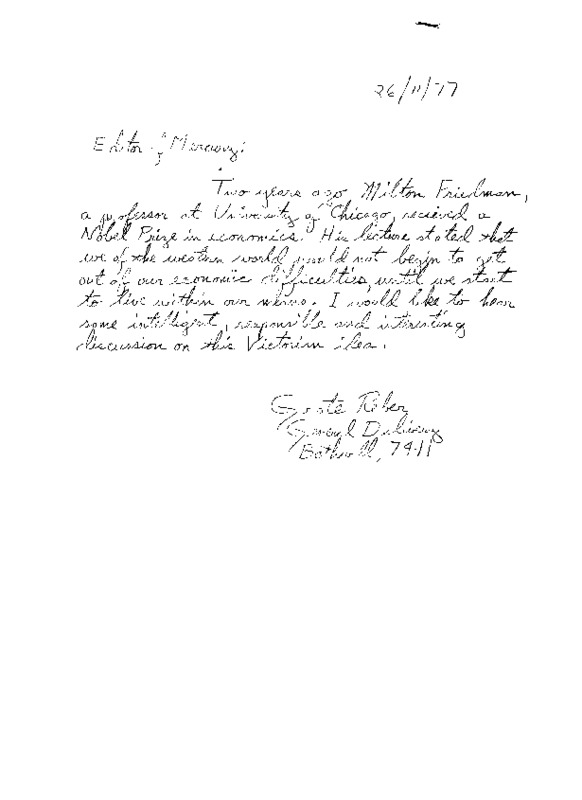 26/11/77
Editor of Mercury:
Two years ago Milton Friedman,
a professor at University of Chicago, recieved a
Nobel Prize in economics. His lecture stated that
we of the western world would not begin to get
out of our economic difficulties, until we start
to live within our means. I would like to hear
some intelligent, responsible and interesting
discussion on this Victorian idea.
Grote Reber
General Delivery
Bothwell, 7411